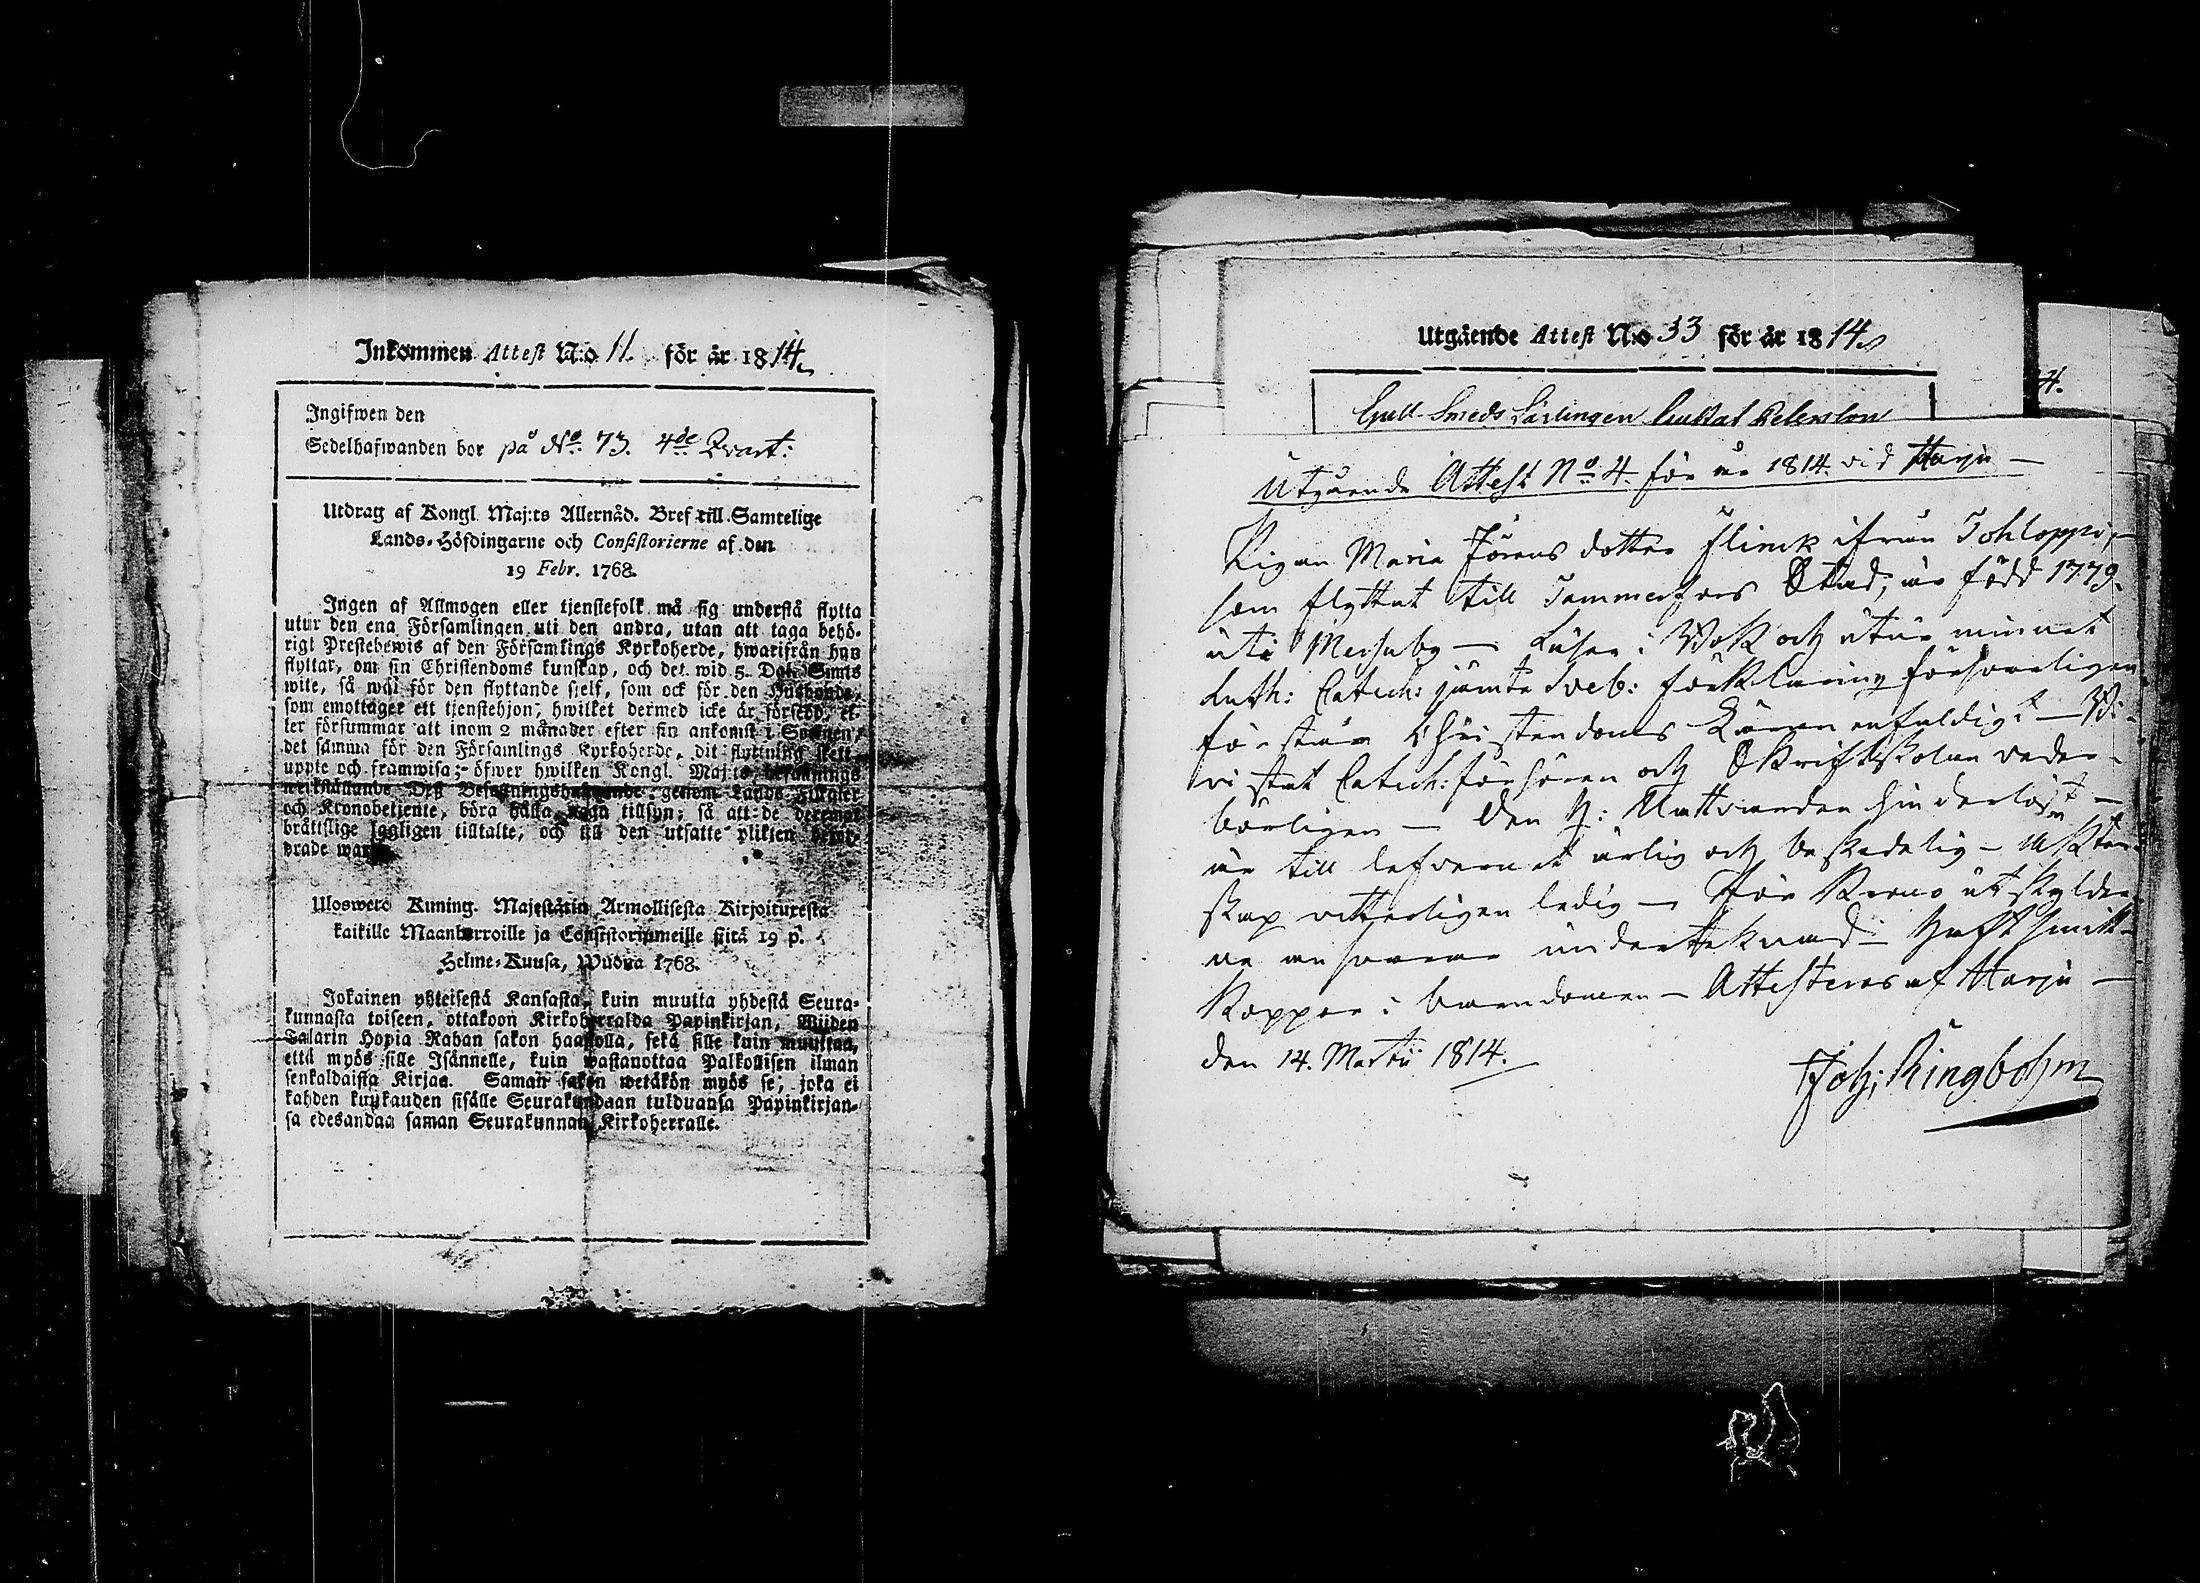 Inkommen Attest N:o 11. för år 1814.
Ingifwen den
Sedelhafwanden bor på No. 73. 4de Qvart:
Utdrag af Kongl. Maj:ts Allernåd. Bref till Samtelige
Lands-Höfdingarne och Consistorierne af den
19 Febr. 1768.
Ingen af Allmogen eller tjenstefolk må sig understå flytta
utur den ena Församlingen uti den andra, utan att taga behö-
rigt Prestebewis af den Församlings Kyrkoherde, hwarifrån han
flyttar, om sin Christendoms kunskap, och det wid 5. Dal. Smts
wite, så wäl för den flyttande sjelf, som ock för den Husbonde,
som emottager ett tjenstehjon, hwilket dermed icke är försedd, el-
ler försummar att inom 2 månader efter sin ankomst i Socknen,
det samma för den Församlings Kyrkoherde, dit flyttning skett,
uppte och framwisa; öfwer hwilken Kongl. Maj:ts
genom Lands Fiscaler
och Kronobetjente, böra hålla noga tillsyn; så att de
bråttslige lagligen tilltalte, och till den utsatte plikten
drade warda.
Uloswete Kuning. Majestätin Armollisesta Kirjoituxesta
kaikille Maanherroille ja Consistoriumeille siitä 19 p.
Helme-Kuusa, Wuonna 1768.
Jokainen yhteisestä Kansasta, kuin muutta yhdestä Seura-
kunnasta toiseen, ottakoon Kirkoherralda Papinkirjan, Wiiden
Talarin Hopia Rahan sakon haastolla, sekä sille kuin muuttaa,
että myös sille Isännelle, kuin wastanottaa Palkollisen ilman
senkaldaista Kirjaa. Saman sakon wetäkön myös se, joka ei
kahden kuukauden sisälle Seurakundaan tulduansa Papinkirjan-
sa edesandaa saman Seurakunnan Kirkoherralle.
Utgående Attest N:o 33 för år 1814.
4.
Gull-Smeds Lärlingen Gustaf Petersson
Utgående Attest No. 4. för år 1814. vid Harju —
Pigan Maria Jörans dotter Flinck ifrån Tohloppi,
som flyttat till Tammerfors Stad, är född 1779.
uti Messuby — Läser i Bok och utur minnet
Luth: Catech: jämte Sveb: förklaring försvarligen
förstår Christendoms Läran enfaldigt — Bi-
vistat Catech: förhören och Skriftskolan veder-
börligen — Den H: Nattvarden hinderlöst —
är till lefvernet ärlig och beskedelig — Äkten-
skap vitterligen ledig — För Krono utskylder-
na ansvarar undertecknad — Haft smitt-
koppor i barndomen — Attesteras af Harju —
den 14. Martii 1814.
Joh; Ringbohm